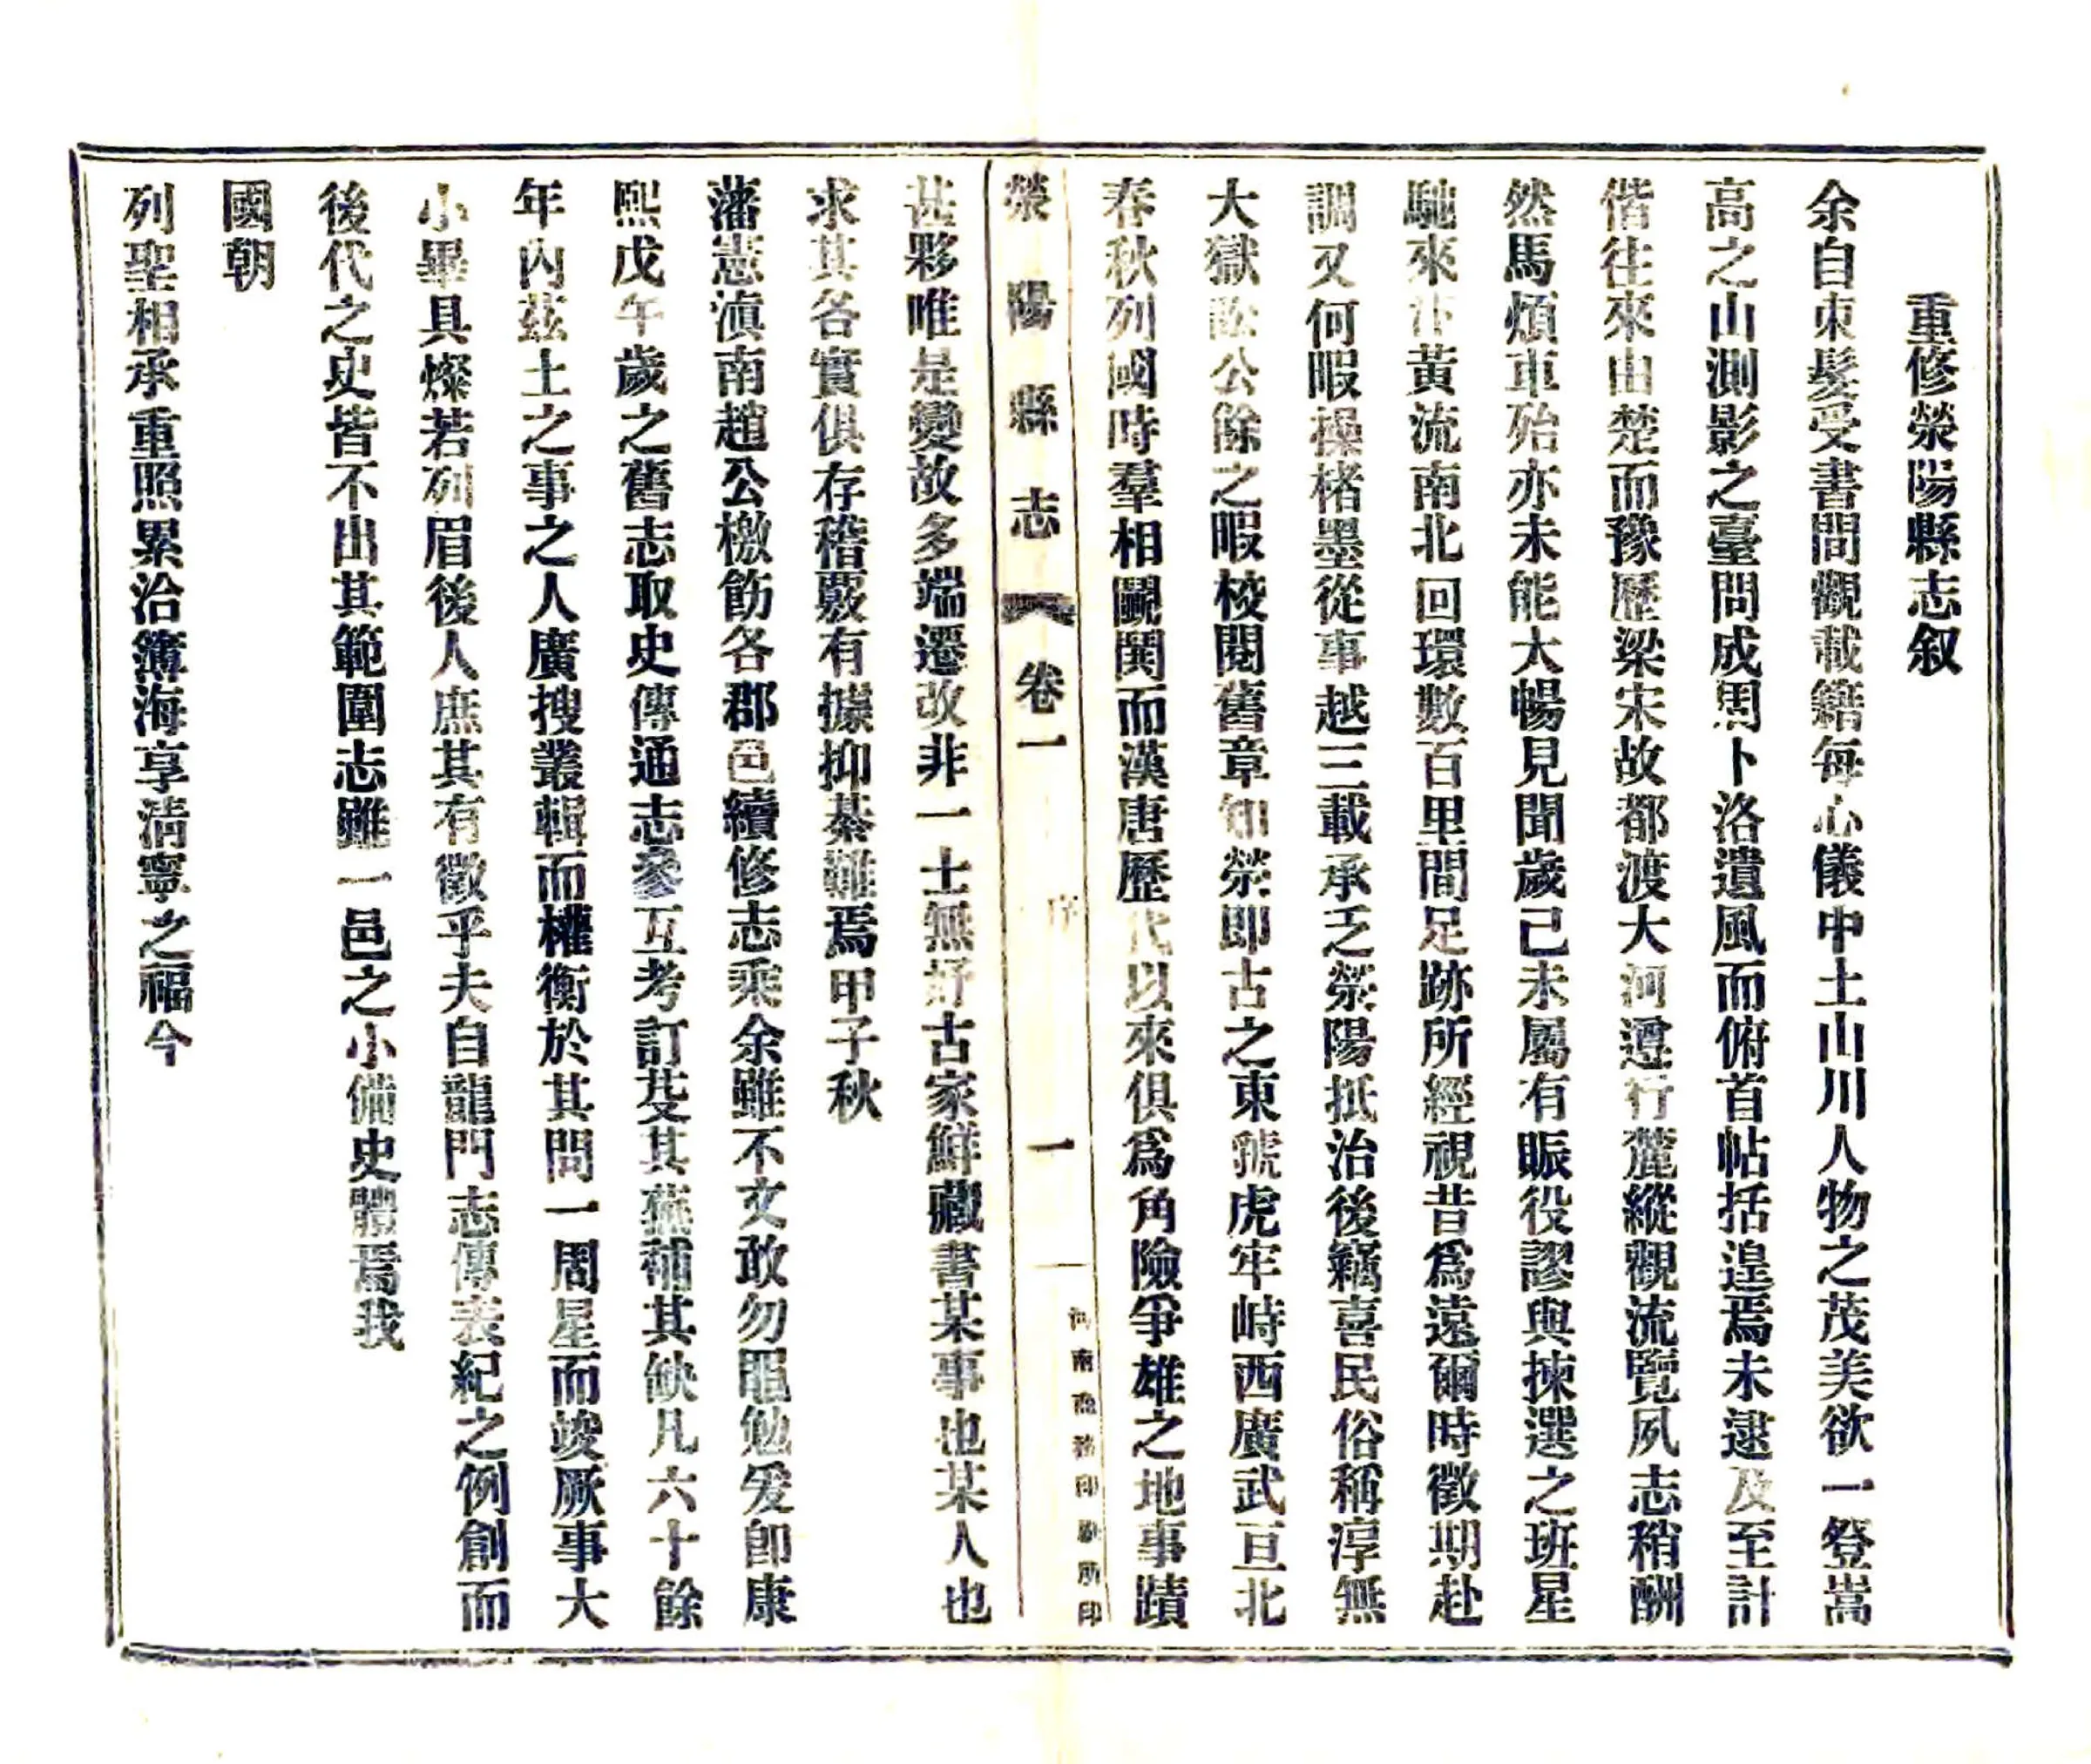 重修滎陽縣志叙
余自束髮受書間觀載籍每心儀中土山川人物之茂美欲一登嵩
高之山測影之臺問成周卜洛遺風而俯首帖括遑焉未逮及至計
偕往來由楚而豫歷梁宋故都渡大河遵行麓縱觀流覽夙志稍酬
然馬煩車殆亦未能大暢見聞歲己未屬有賑役謬與揀選之班星
馳來汴黃流南北回環數百里間足跡所經視昔爲遠爾時徵期赴
調又何暇操楮墨從事越三載承乏滎陽抵治後竊喜民俗稱淳無
大獄訟公餘之暇校閱舊章知滎即古之東虢虎牢峙西廣武亘北
春秋列國時羣相鬬鬨而漢唐歷代以來俱爲角險爭雄之地事蹟
滎陽縣志 卷一 序 一 河南商務印刷所印
甚夥唯是變故多端遷改非一士無好古家鮮藏書某事也某人也
求其各實俱存稽覈有據抑綦難焉甲子秋
藩憲滇南趙公檄飭各郡邑續修志乘余雖不文敢勿黽勉爰即康
熙戊午歲之舊志取史傳通志參互考訂芟其蕪補其缺凡六十餘
年內茲土之事之人廣搜叢輯而權衡於其間一周星而竣厥事大
小畢具燦若列眉後人庶其有徵乎夫自龍門志傳表紀之例創而
後代之史皆不出其範圍志雖一邑之小備史體焉我
國朝
列聖相承重照累洽簿海享淸寧之福今